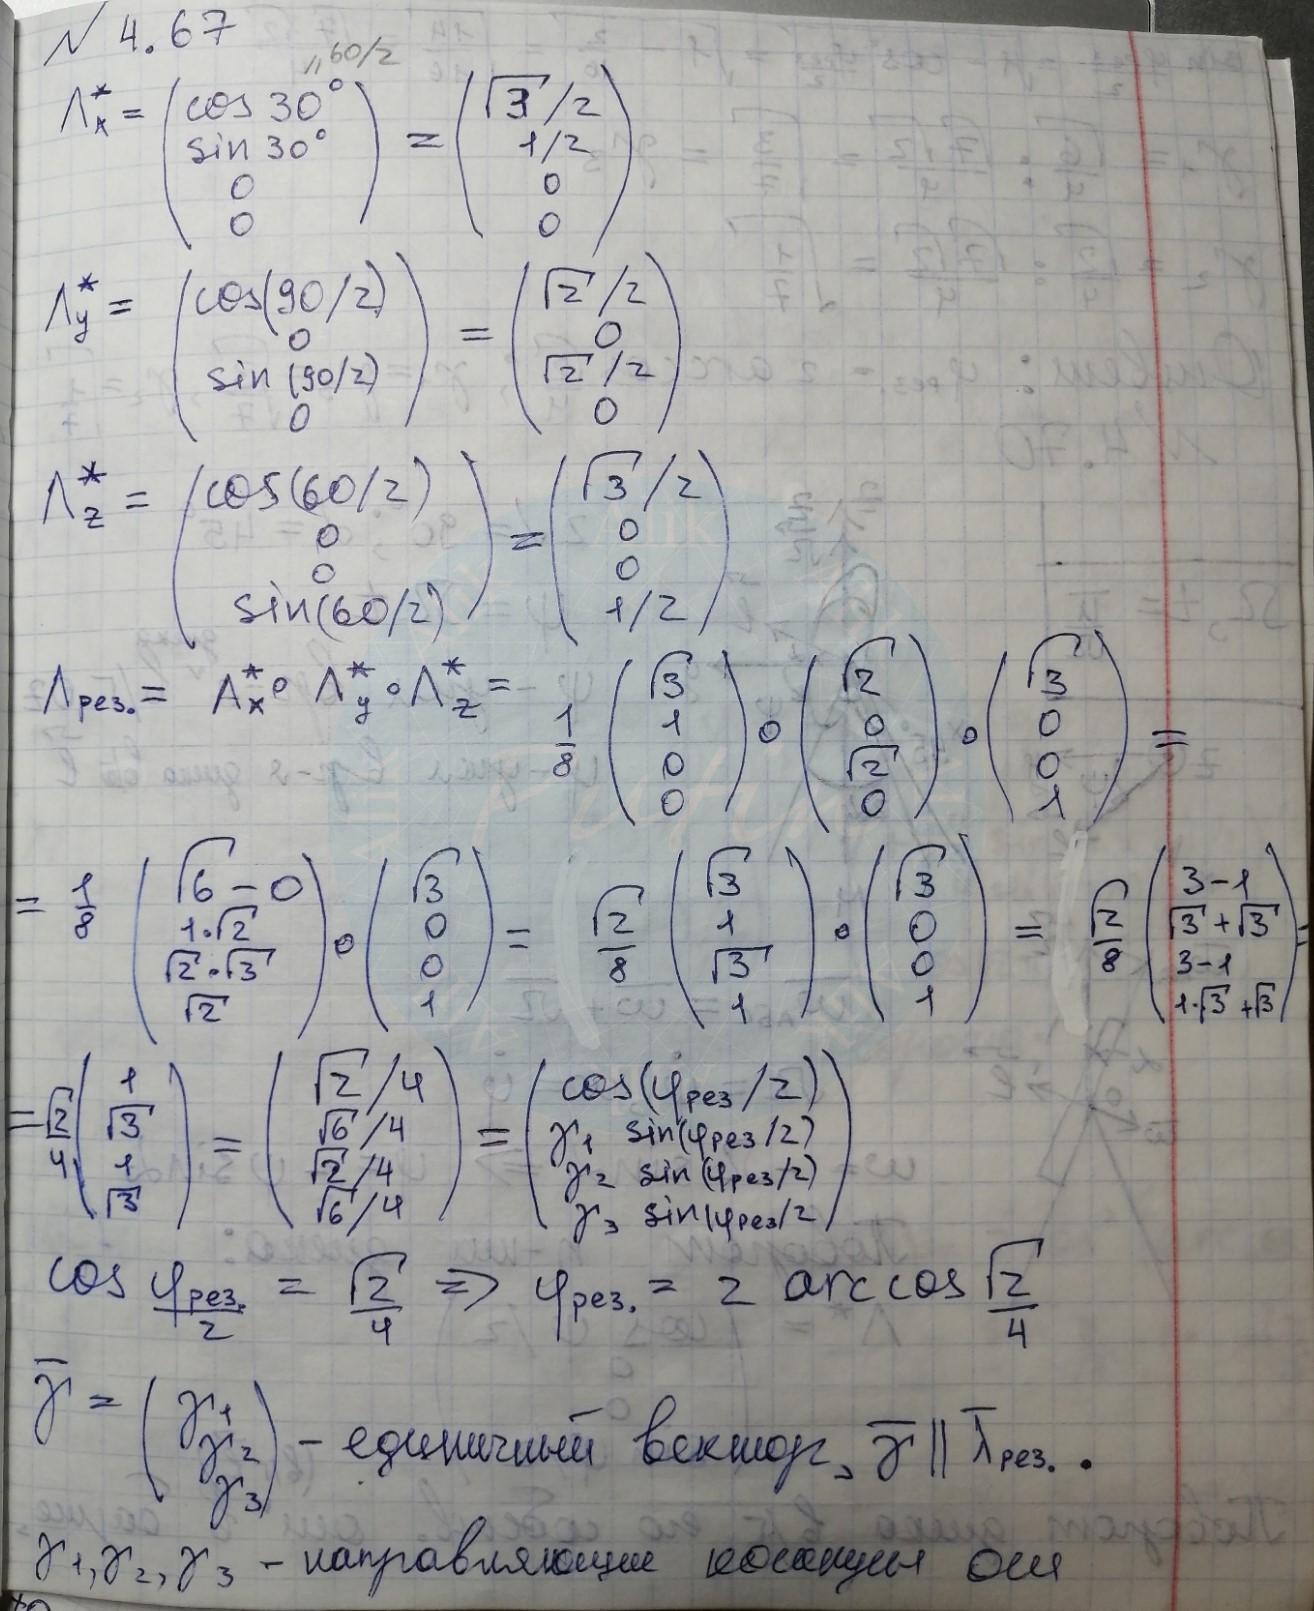 N 4.67
"60/2
Λ*x = (cos 30° sin 30° 0 0) = (√3/2 1/2 0 0)
Λ*y = (cos(90/2) 0 sin(90/2) 0) = (√2/2 0 √2/2 0)
Λ*z = (cos(60/2) 0 0 sin(60/2)) = (√3/2 0 0 1/2)
Λрез. = Λ*x ∘ Λ*y ∘ Λ*z = 1/8 (√3 1 0 0) ∘ (√2 0 √2 0) ∘ (√3 0 0 1) =
= 1/8 (√6 - 0 1·√2 √2·√3 √2) ∘ (√3 0 0 1) = √2/8 (√3 1 √3 1) ∘ (√3 0 0 1) = √2/8 (3-1 √3+√3 3-1 1·√3+√3) =
= √2/4 (1 √3 1 √3) = (√2/4 √6/4 √2/4 √6/4) = (cos(φрез/2) γ1 sin(φрез/2) γ2 sin(φрез/2) γ3 sin(φрез/2)
cos φрез./2 = √2/4 => φрез. = 2 arccos √2/4
γ̄ = (γ1 γ2 γ3) - единичный вектор, γ̄ || λ̄рез.
γ1, γ2, γ3 - направляющие косинусы оси